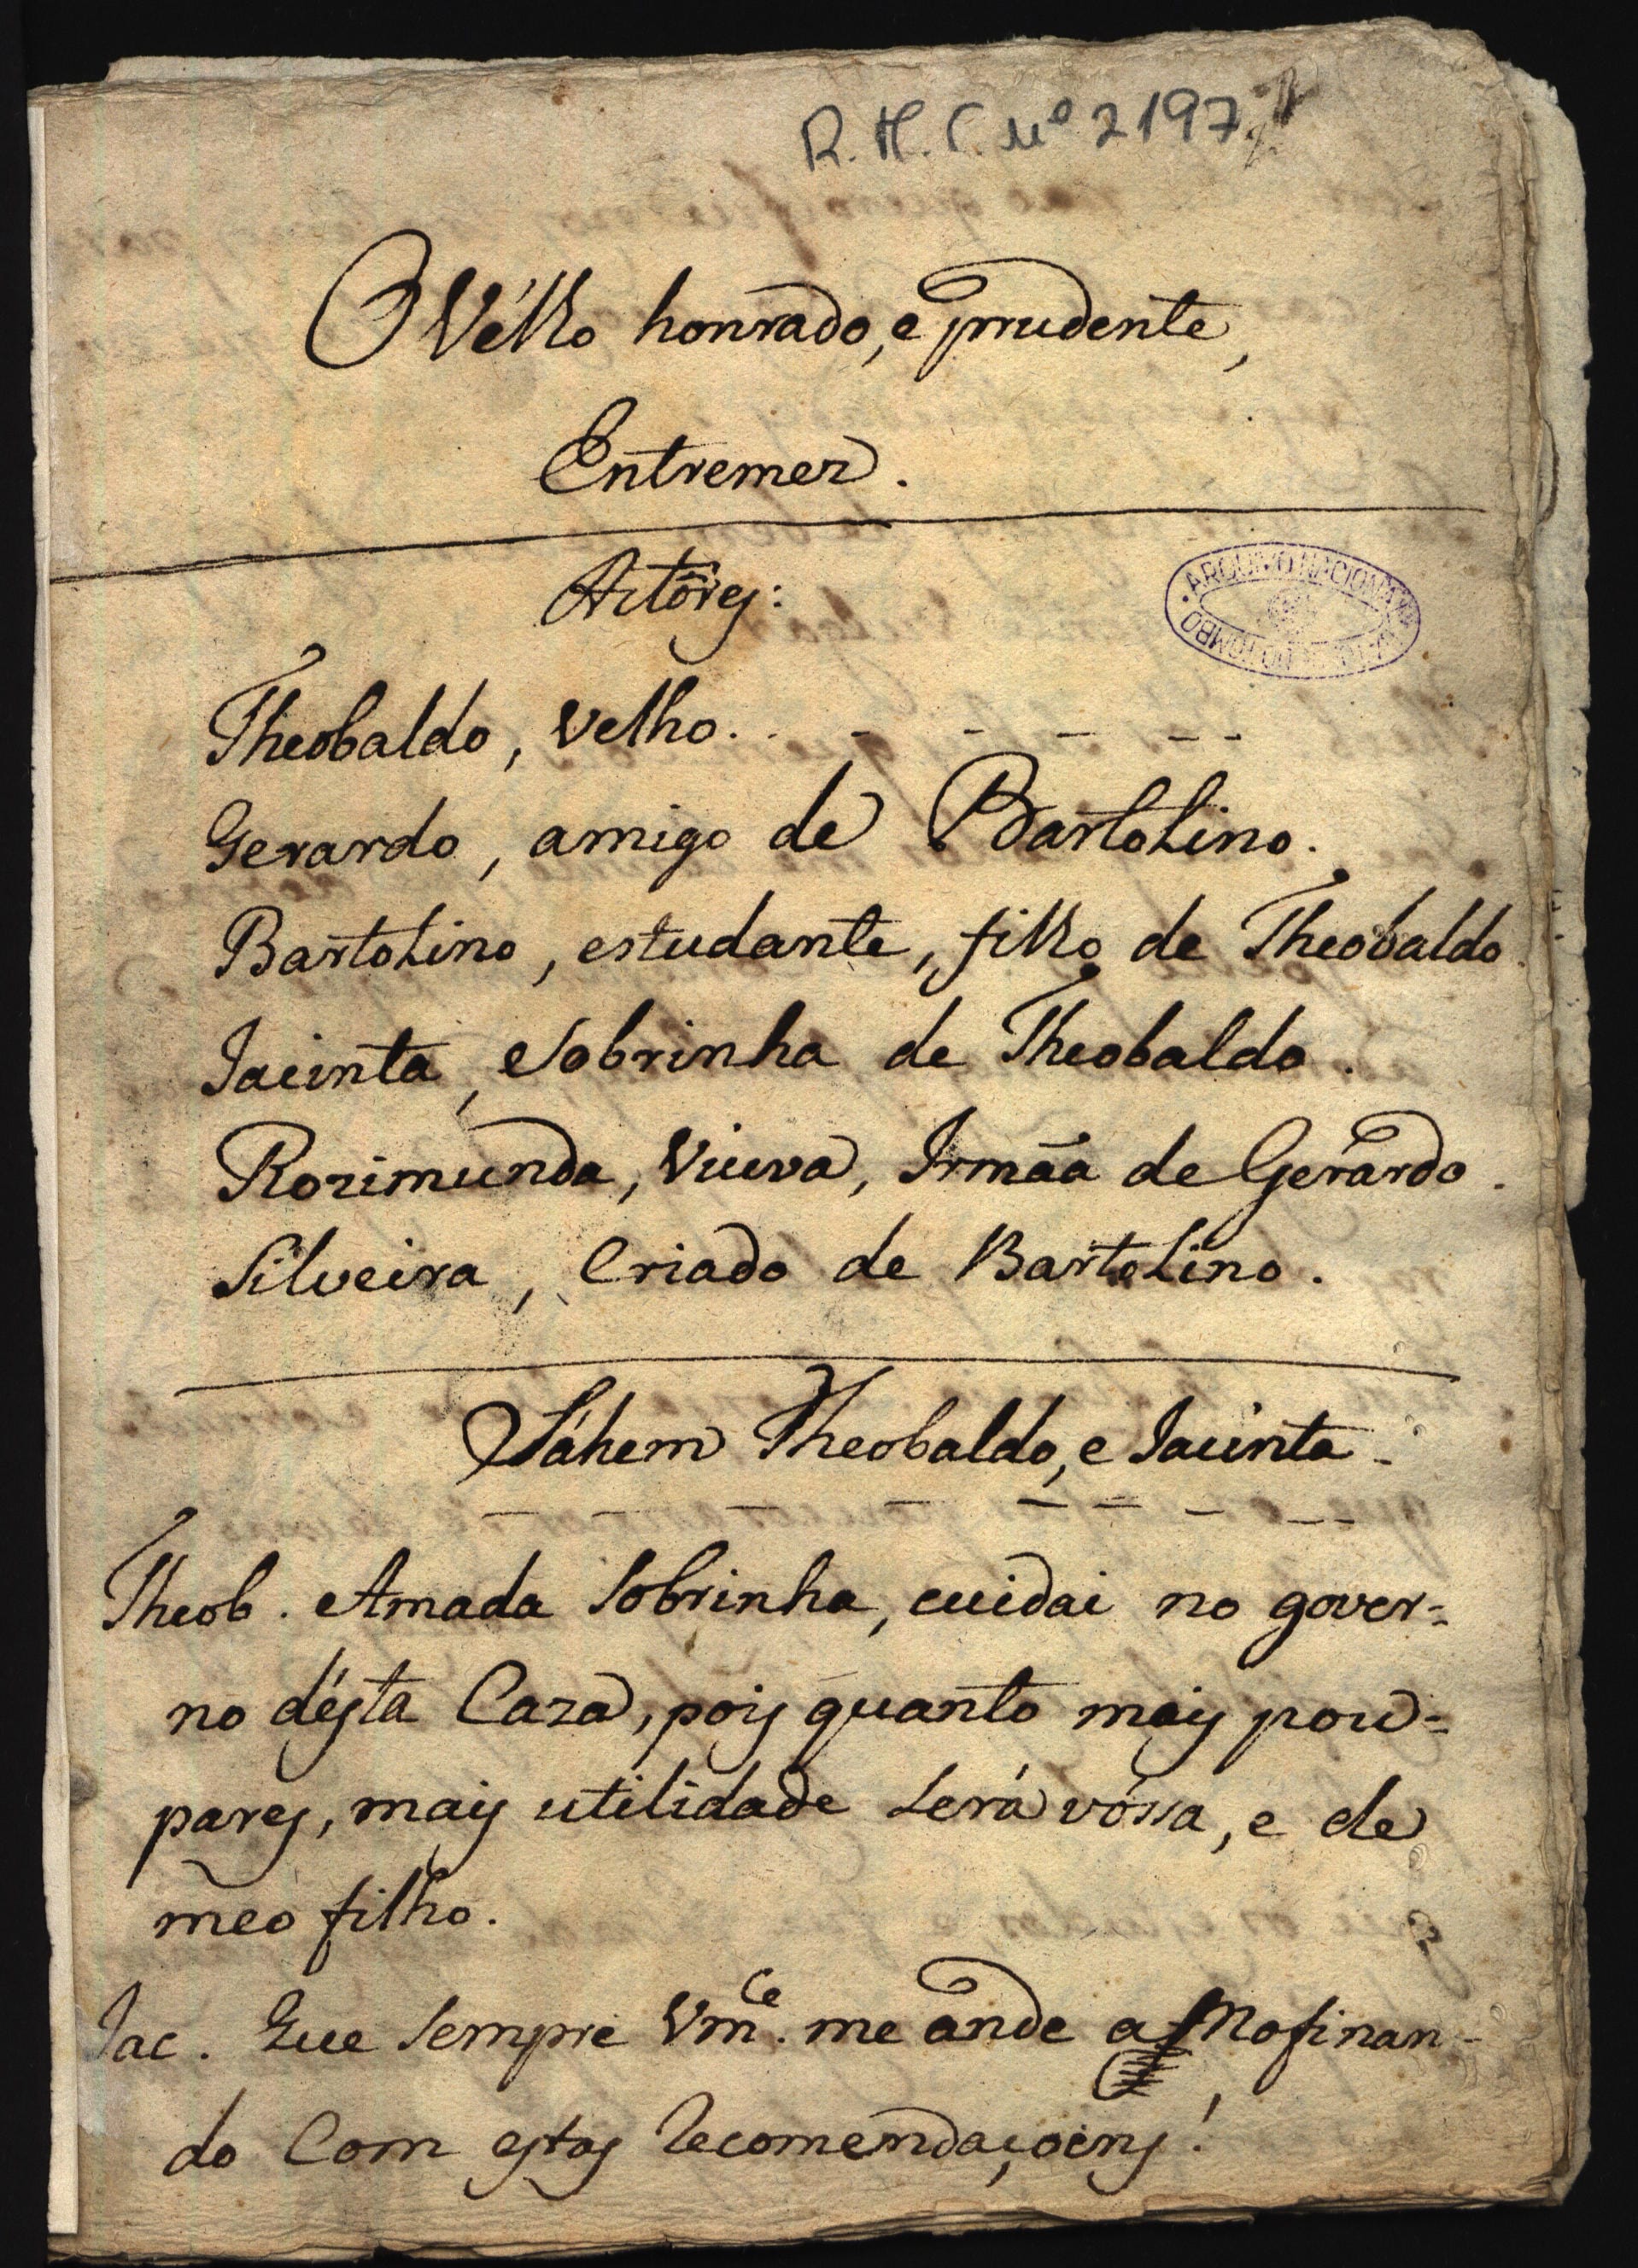 R. M. C. Nº 2197
O Vélho honrado, e prudente,
Entremez.
Actôres:
ARQUIVO NACIONAL DA TORRE DO TOMBO
Theobaldo, Velho. . - - - - -
Gerardo, amigo de Bartolino.
Bartolino, estudante, filho de Theobaldo.
Jacinta, Sobrinha de Theobaldo.
Rozimunda, Viuva, Irmãa de Gerardo.
Silveira, Criado de Bartolino.
Sáhem Theobaldo, e Jacinta.
Theob. Amada Sobrinha, cuidai no gover=
no désta Caza, pois quanto mais pou=
pares, mais utilidade Será vóssa, e de
meo filho.
Jac. Que Sempre Vmce. me ande a Mofinan-
do Com estas Recomendaçoens!